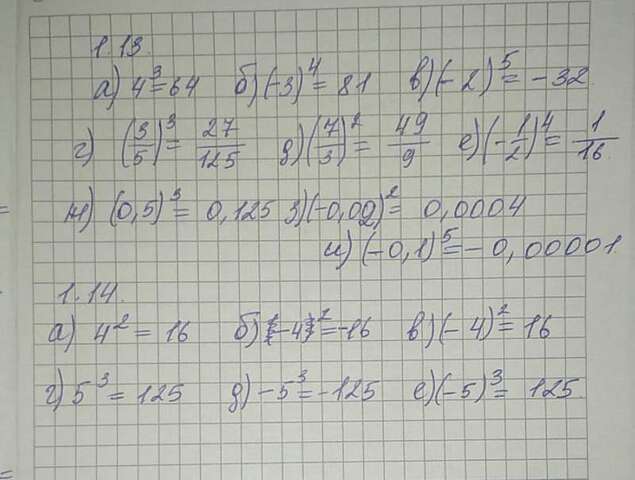 1.13.
а) 4³=64 б) (-3)⁴=81 в) (-2)⁵=-32
г) (3/5)³=27/125 д) (7/3)²=49/9 е) (-1/2)⁴=1/16
ж) (0,5)³=0,125 з) (-0,02)²=0,0004
и) (-0,1)⁵=-0,00001
1.14.
а) 4²=16 б) -4²=-16 в) (-4)²=16
г) 5³=125 д) -5³=-125 е) (-5)³=125